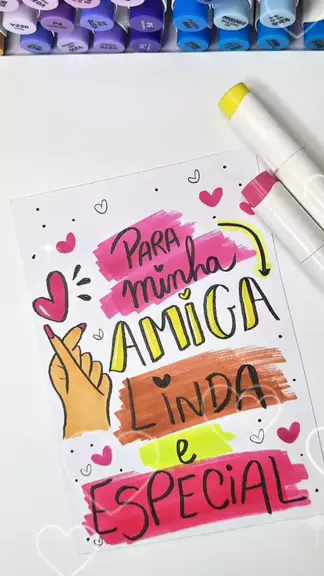 PARA
minha
AMIGA
LINDA
e
ESPECIAL